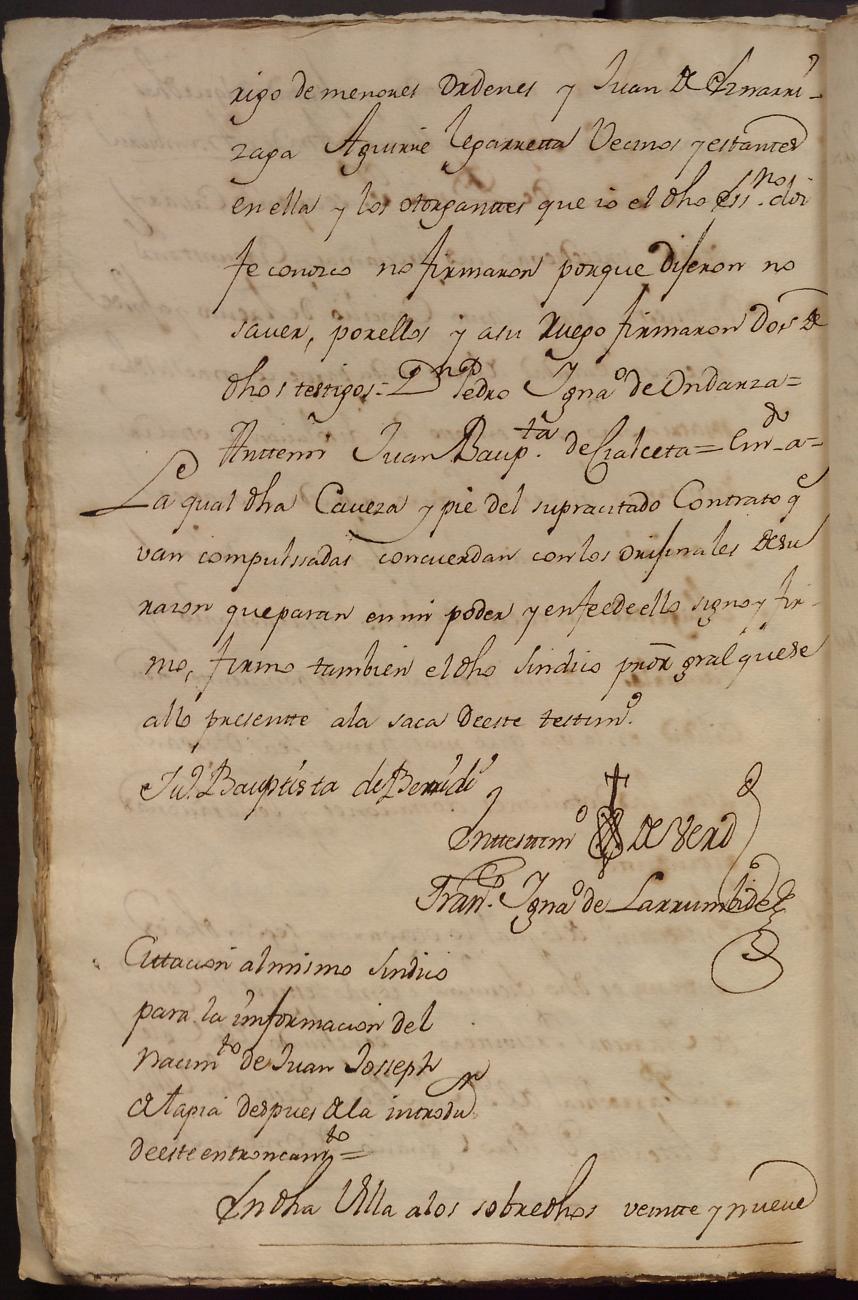 rigo de menores ordenes y Juan de Chriarri-
zaga Aguirre Legarretta Vecinos y estantes
en ella y los otorganttes que io el dho Essno. doi
fe conozco no firmaron porque dijeron no
saver, por ellos y a su Ruego firmaron Dos de
dhos testigos = Dn Pedro Ygnao de Ondarza =
Anttemi Juan Bapta. de = Emdo = a =
La qual dha Caveza y pie del supracitado Contrato qe
van compulssadas concuerdan con los orijinales de su
razon que paran en mi poder y en fee de ello signo y fir-
mo, firmo tambien el dho sindico pror gral que se
allo presentte a la saca de este testimo.
Jun. Bauptista de
En testimo de Verd
Franco. Ygnao de Larrumbide
Cittacion al mismo sindico
para la informacion del
nacimto de Juan Josseph
de tapia despues de la introdun
de este entroncamto =
En dha Villa a los sobredhos veintte y nueve